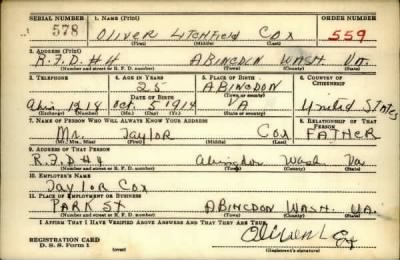 SERIAL NUMBER 1. NAME (Print) ORDER NUMBER
578 OLIVER LITCHFIELD COX 559
(First) (Middle) (Last)
2. ADDRESS (Print)
R.F.D #4 ABINGDON WASH. VA.
(Number and street or R. F. D. number) (Town) (County) (State)
3. TELEPHONE 4. AGE IN YEARS 5. PLACE OF BIRTH 6. COUNTRY OF CITIZENSHIP
25 ABINGDON
DATE OF BIRTH (Town or county)
1218 Oct. 5 1914 VA United States
(Exchange) (Number) (Mo.) (Day) (Yr.) (State or country)
7. NAME OF PERSON WHO WILL ALWAYS KNOW YOUR ADDRESS 8. RELATIONSHIP OF THAT PERSON
Mr. Taylor Cox FATHER
(Mr., Mrs., Miss) (First) (Middle) (Last)
9. ADDRESS OF THAT PERSON
R.F.D #4 Abingdon Wash Va
(Number and street or R. F. D. number) (Town) (County) (State)
10. EMPLOYER'S NAME
Taylor Cox
11. PLACE OF EMPLOYMENT OR BUSINESS
PARK ST ABINGDON WASH. VA.
(Number and street or R. F. D. number) (Town) (County) (State)
I AFFIRM THAT I HAVE VERIFIED ABOVE ANSWERS AND THAT THEY ARE TRUE.
REGISTRATION CARD
D. S. S. Form 1 (over) (Registrant's signature)
Oliver L Cox